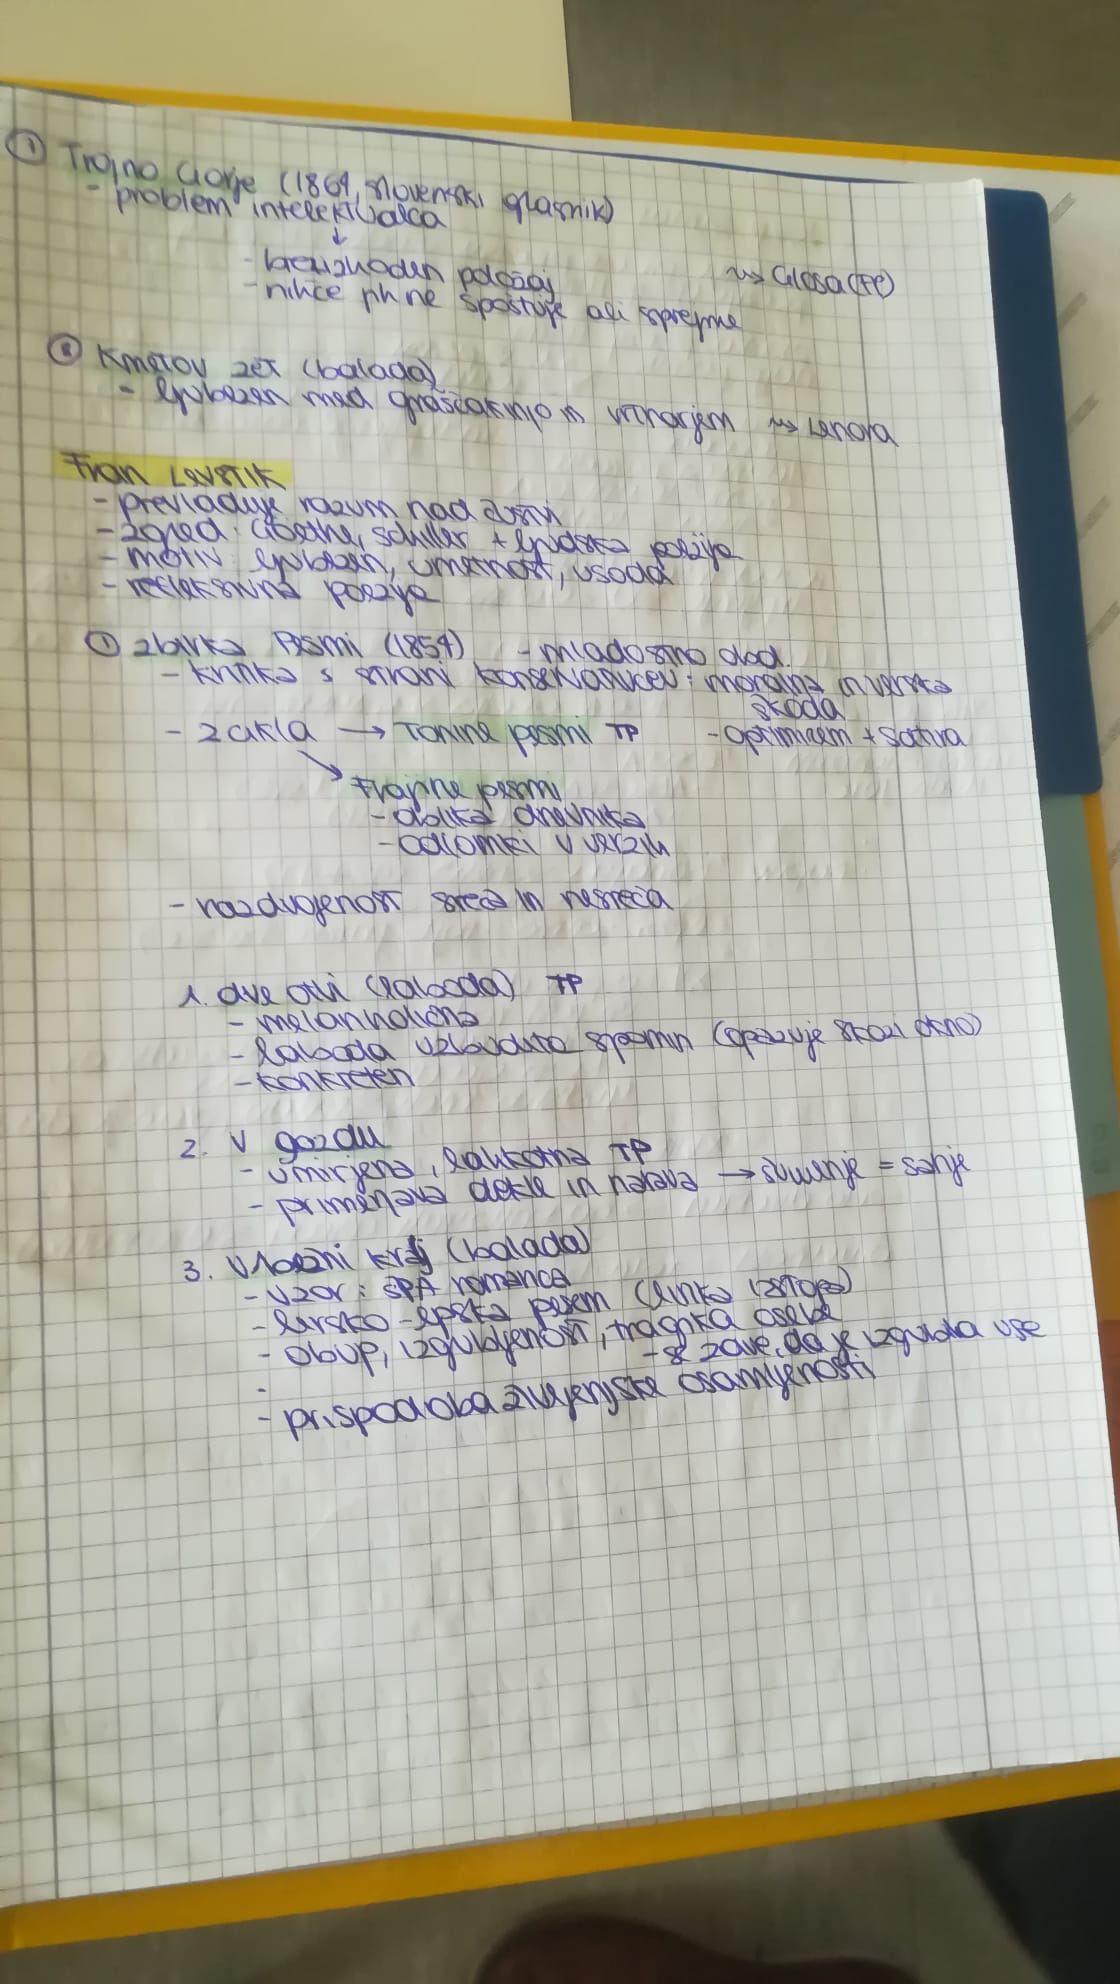 ① Trojno Gorje (1864, slovenski glasnik)
- problem intelektualca
↓
- brezizhoden položaj
~> Glosa (FP)
- nihče ph ne spoštuje ali sprejme
② Kmetov zet (balada)
- ljubezen med graščakinjo in vrtnarjem ~> Lenora
Fran LEVSTIK
- prevladuje razum nad čustvi
- zgled: Goethe, Schiller + ljudska poezija
- motiv: ljubezen, umetnost, usoda
- refleksivna poezija
① zbirka Pesmi (1854) - mladostno obd.
- kritika s strani konservativcev: moralna in verska
škoda
- 2 cikla → Tonine pesmi TP - optimizem + satira
↘ Franjine pesmi
- oblika dnevnika
- odlomki v verzih
- razdvojenost sreča in nesreča
1. dve otvi (laboda) TP
- melanholična
- laboda vzbudita spomin (opazuje skozi okno)
- konkreten
2. V gozdu
- umirjena, lahkotna TP
- primerjava dekle in narava → = sanje
3. Ubežni kralj (balada)
- vzor: ŠPA romanca
- lirsko-epska pesem (lirika izstopa)
- obup, izgubljenost, tragika osebe
- se zave, da je izgubila vse
-
- prispodoba življenjske osamljenosti